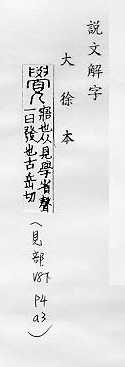 說文解字
大徐本
覺
寤也从見學省聲
一曰發也古岳切
(見部 V8下 P4 a3)